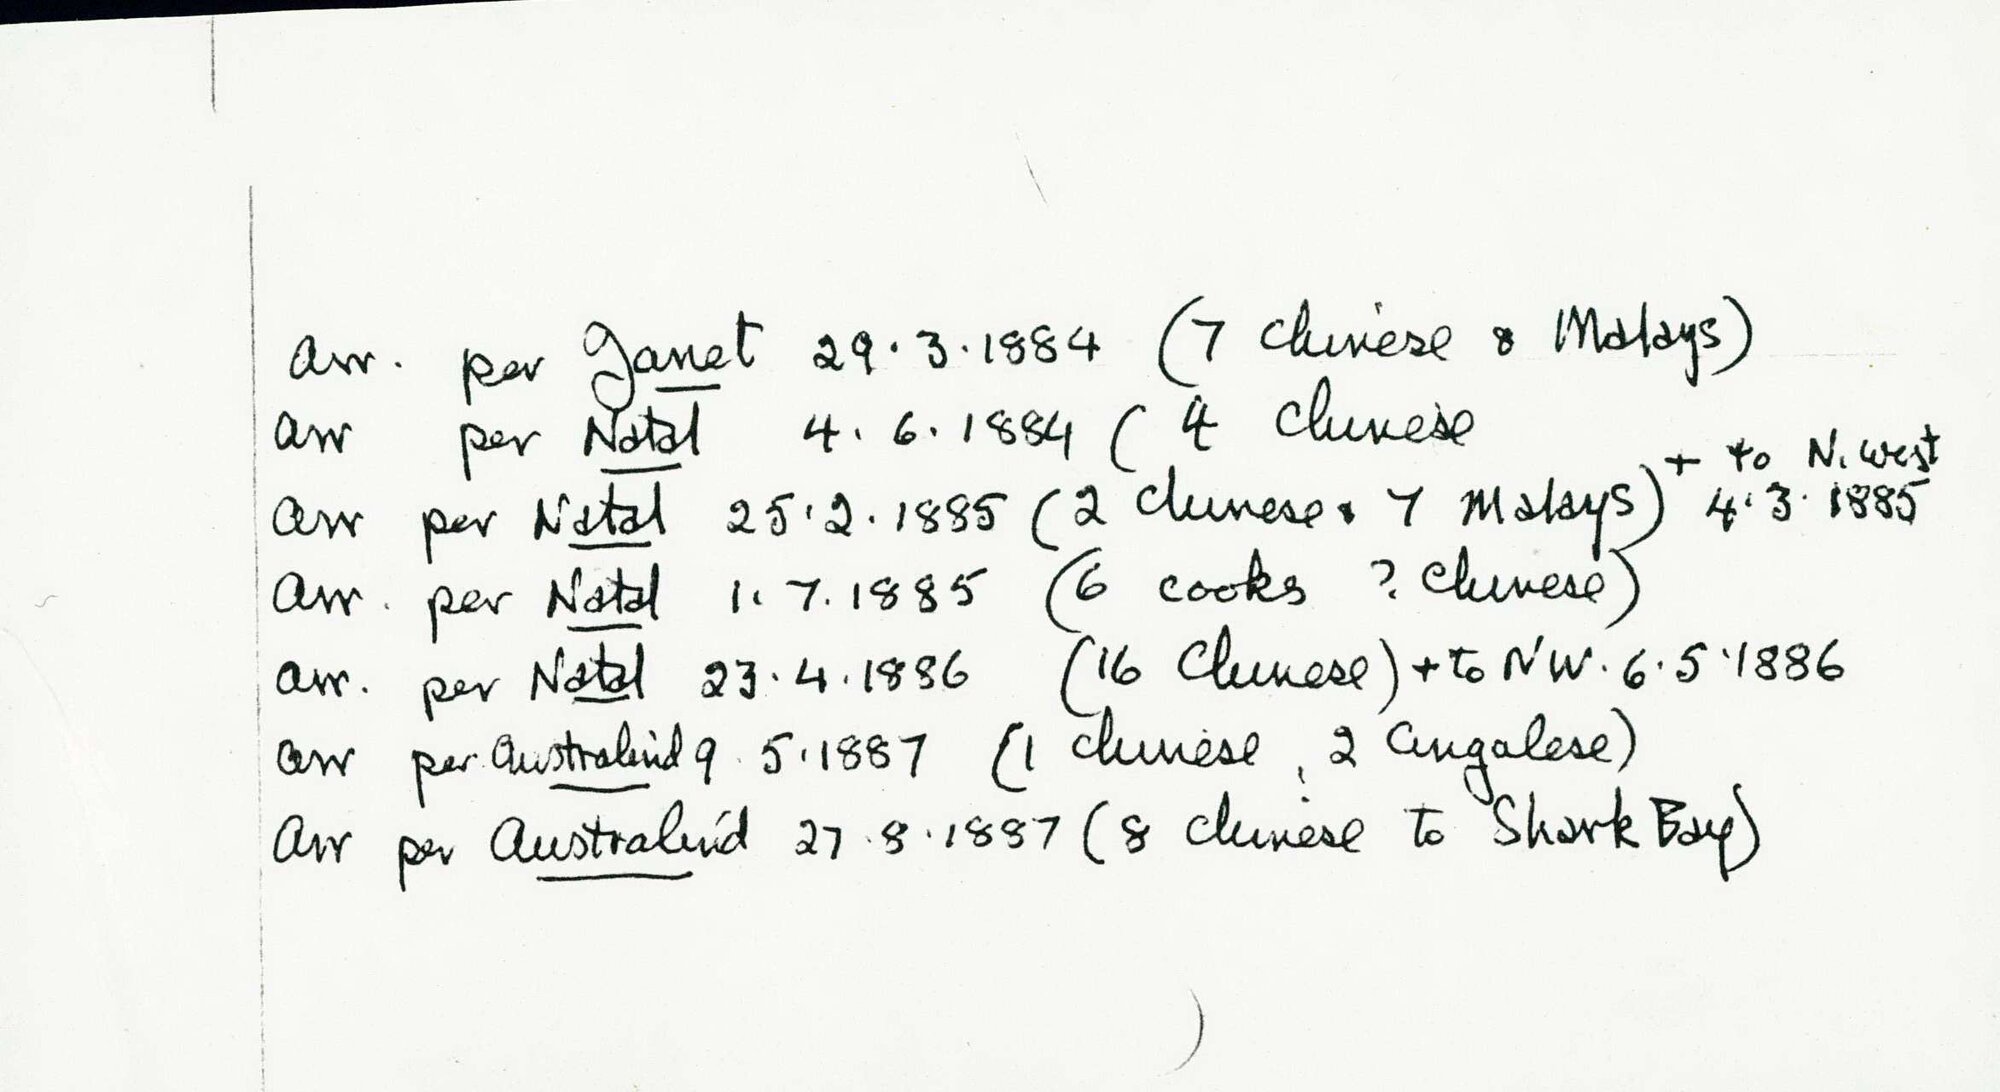 arr. per Janet 29.3.1884 (7 Chinese & Malays)
arr per Natal 4.6.1884 (4 Chinese
arr per Natal 25.2.1885 (2 Chinese & 7 Malays) + to N. West 4.3.1885
arr. per Natal 1.7.1885 (6 cooks ? Chinese)
arr. per Natal 23.4.1886 (16 Chinese) + to NW. 6.5.1886
arr per Australind 9.5.1887 (1 Chinese, 2 Cingalese)
arr per Australind 27.8.1887 (8 Chinese to Shark Bay)